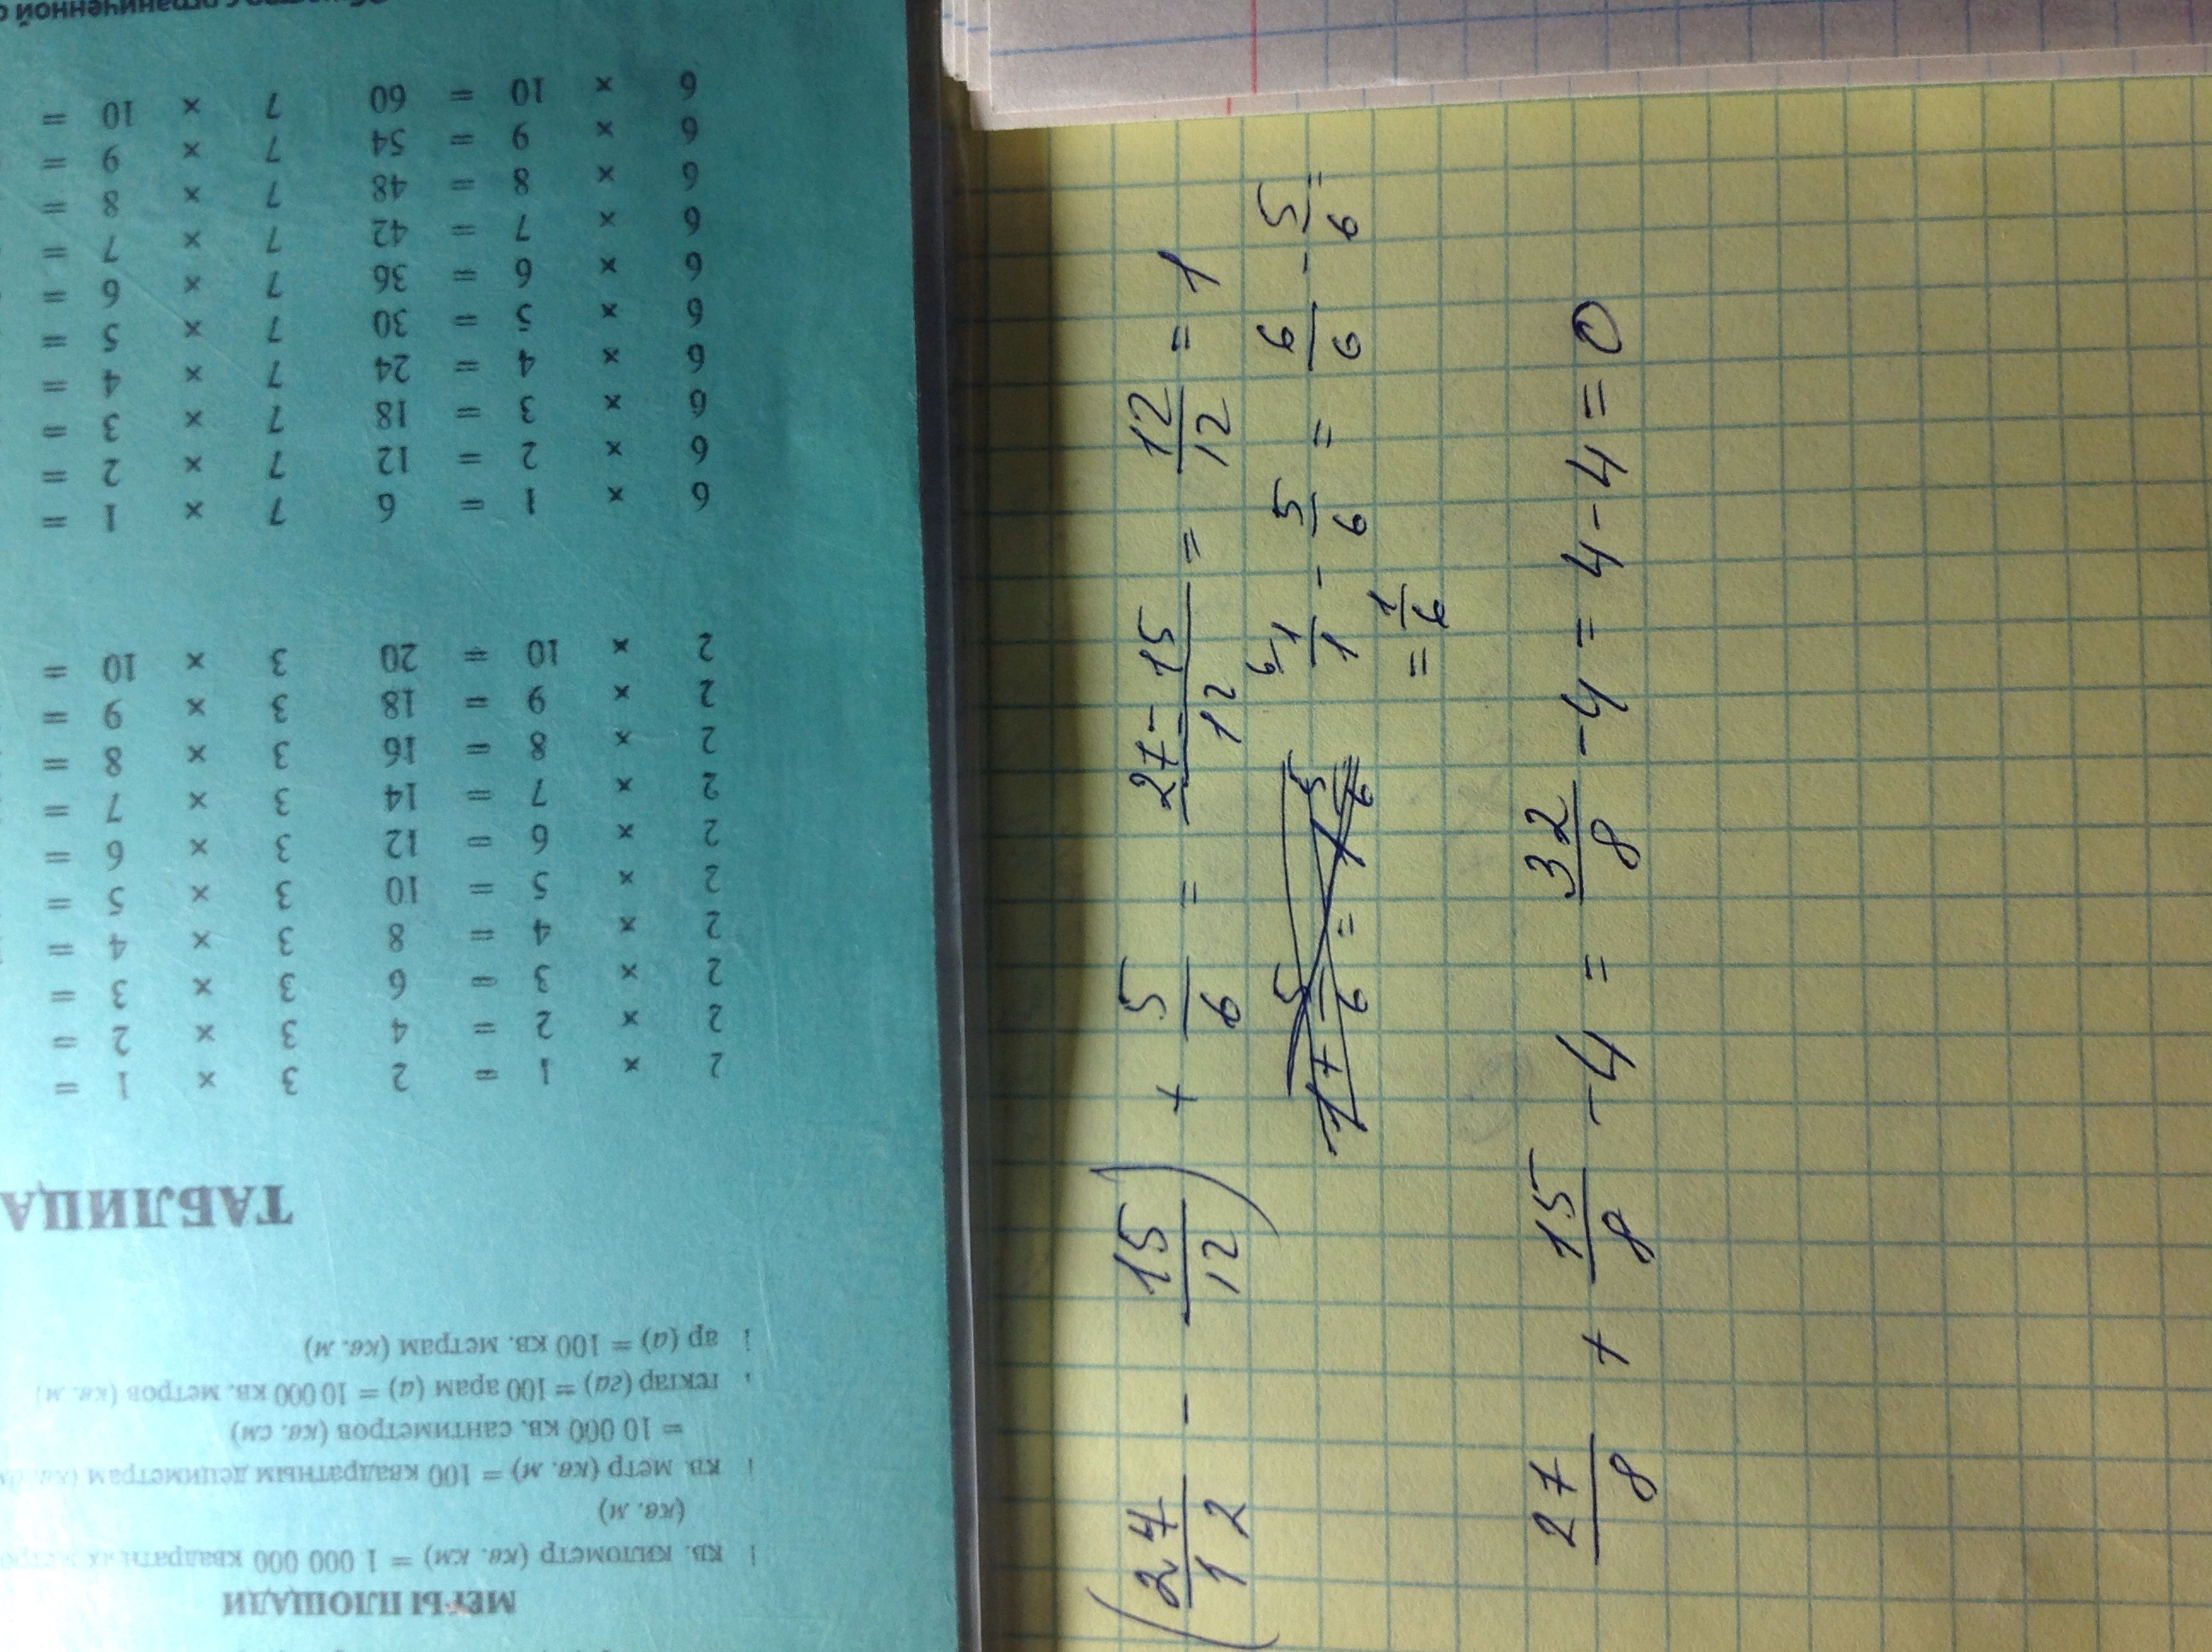 (27/12 - 15/12) + 5/6 = 27-15/12 = 12/12 = 1
1+5/6 = 1 5/6
6/ 1/1 - 5/6 = 6/6 - 5/6 =
= 1/6
27/8 + 15/8 - 4 = 32/8 - 4 = 4 - 4 = 0
МЕРЫ ПЛОЩАДИ
1 кв. километр (кв. км) = 1 000 000 квадратных
(кв. м)
1 кв. метр (кв. м) = 100 квадратным дециметрам
= 10 000 кв. сантиметров (кв. см)
гектар (га) = 100 арам (а) = 10 000 кв. метров (кв. м)
1 ар (а) = 100 кв. метрам (кв. м)
ТАБЛИЦА
2 × 1 = 2 3 × 1 =
2 × 2 = 4 3 × 2 =
2 × 3 = 6 3 × 3 =
2 × 4 = 8 3 × 4 =
2 × 5 = 10 3 × 5 =
2 × 6 = 12 3 × 6 =
2 × 7 = 14 3 × 7 =
2 × 8 = 16 3 × 8 =
2 × 9 = 18 3 × 9 =
2 × 10 = 20 3 × 10 =
6 × 1 = 6 7 × 1 =
6 × 2 = 12 7 × 2 =
6 × 3 = 18 7 × 3 =
6 × 4 = 24 7 × 4 =
6 × 5 = 30 7 × 5 =
6 × 6 = 36 7 × 6 =
6 × 7 = 42 7 × 7 =
6 × 8 = 48 7 × 8 =
6 × 9 = 54 7 × 9 =
6 × 10 = 60 7 × 10 =
с ограниченной о